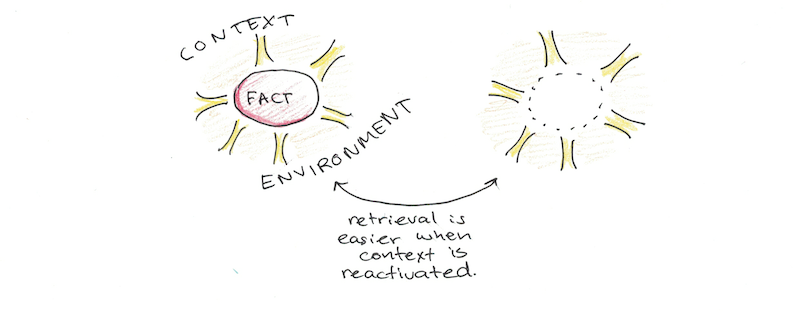 CONTEXT
FACT
ENVIRONMENT
retrieval is
easier when
context is
reactivated.